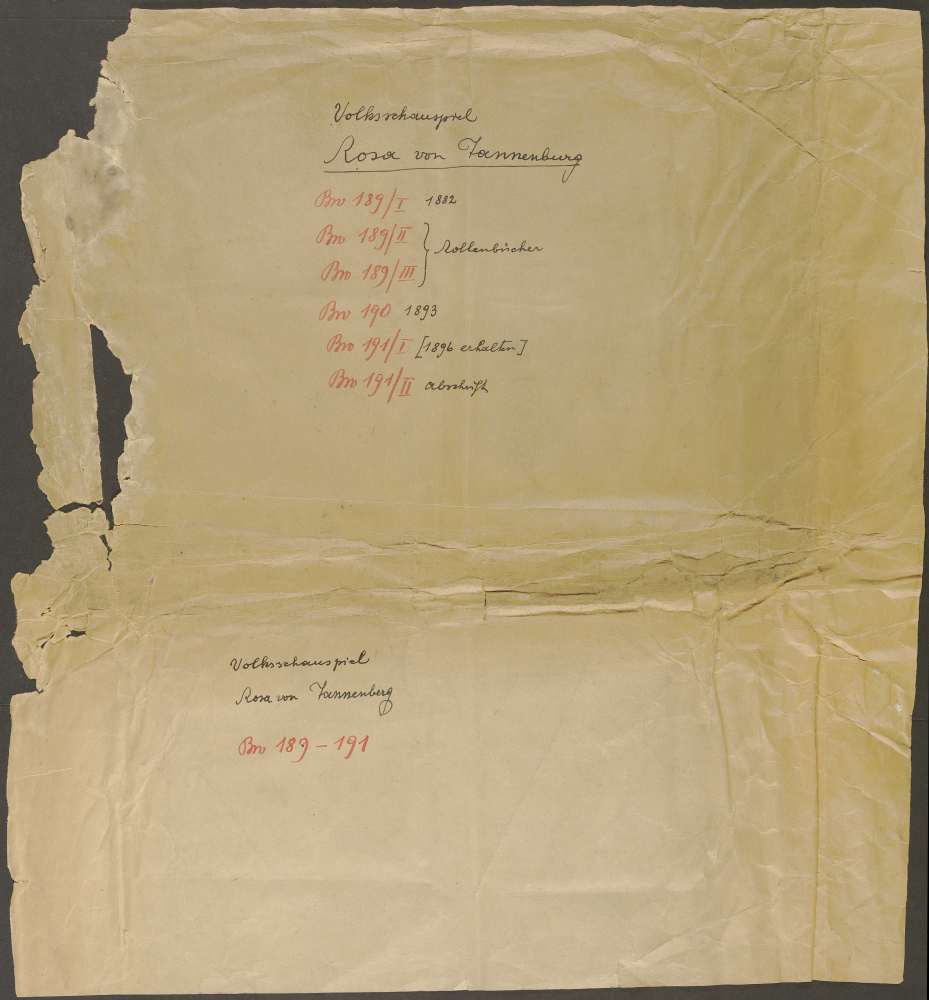 Volksschauspiel
Rosa von Tannenburg
Bro 189/I 1882
Bro 189/II
Bro 189/III } Rollenbücher
Bro 190 1893
Bro 191/I [1896 erhalten]
Bro 191/II Abschrift
Volksschauspiel
Rosa von Tannenberg
Bro 189 - 191